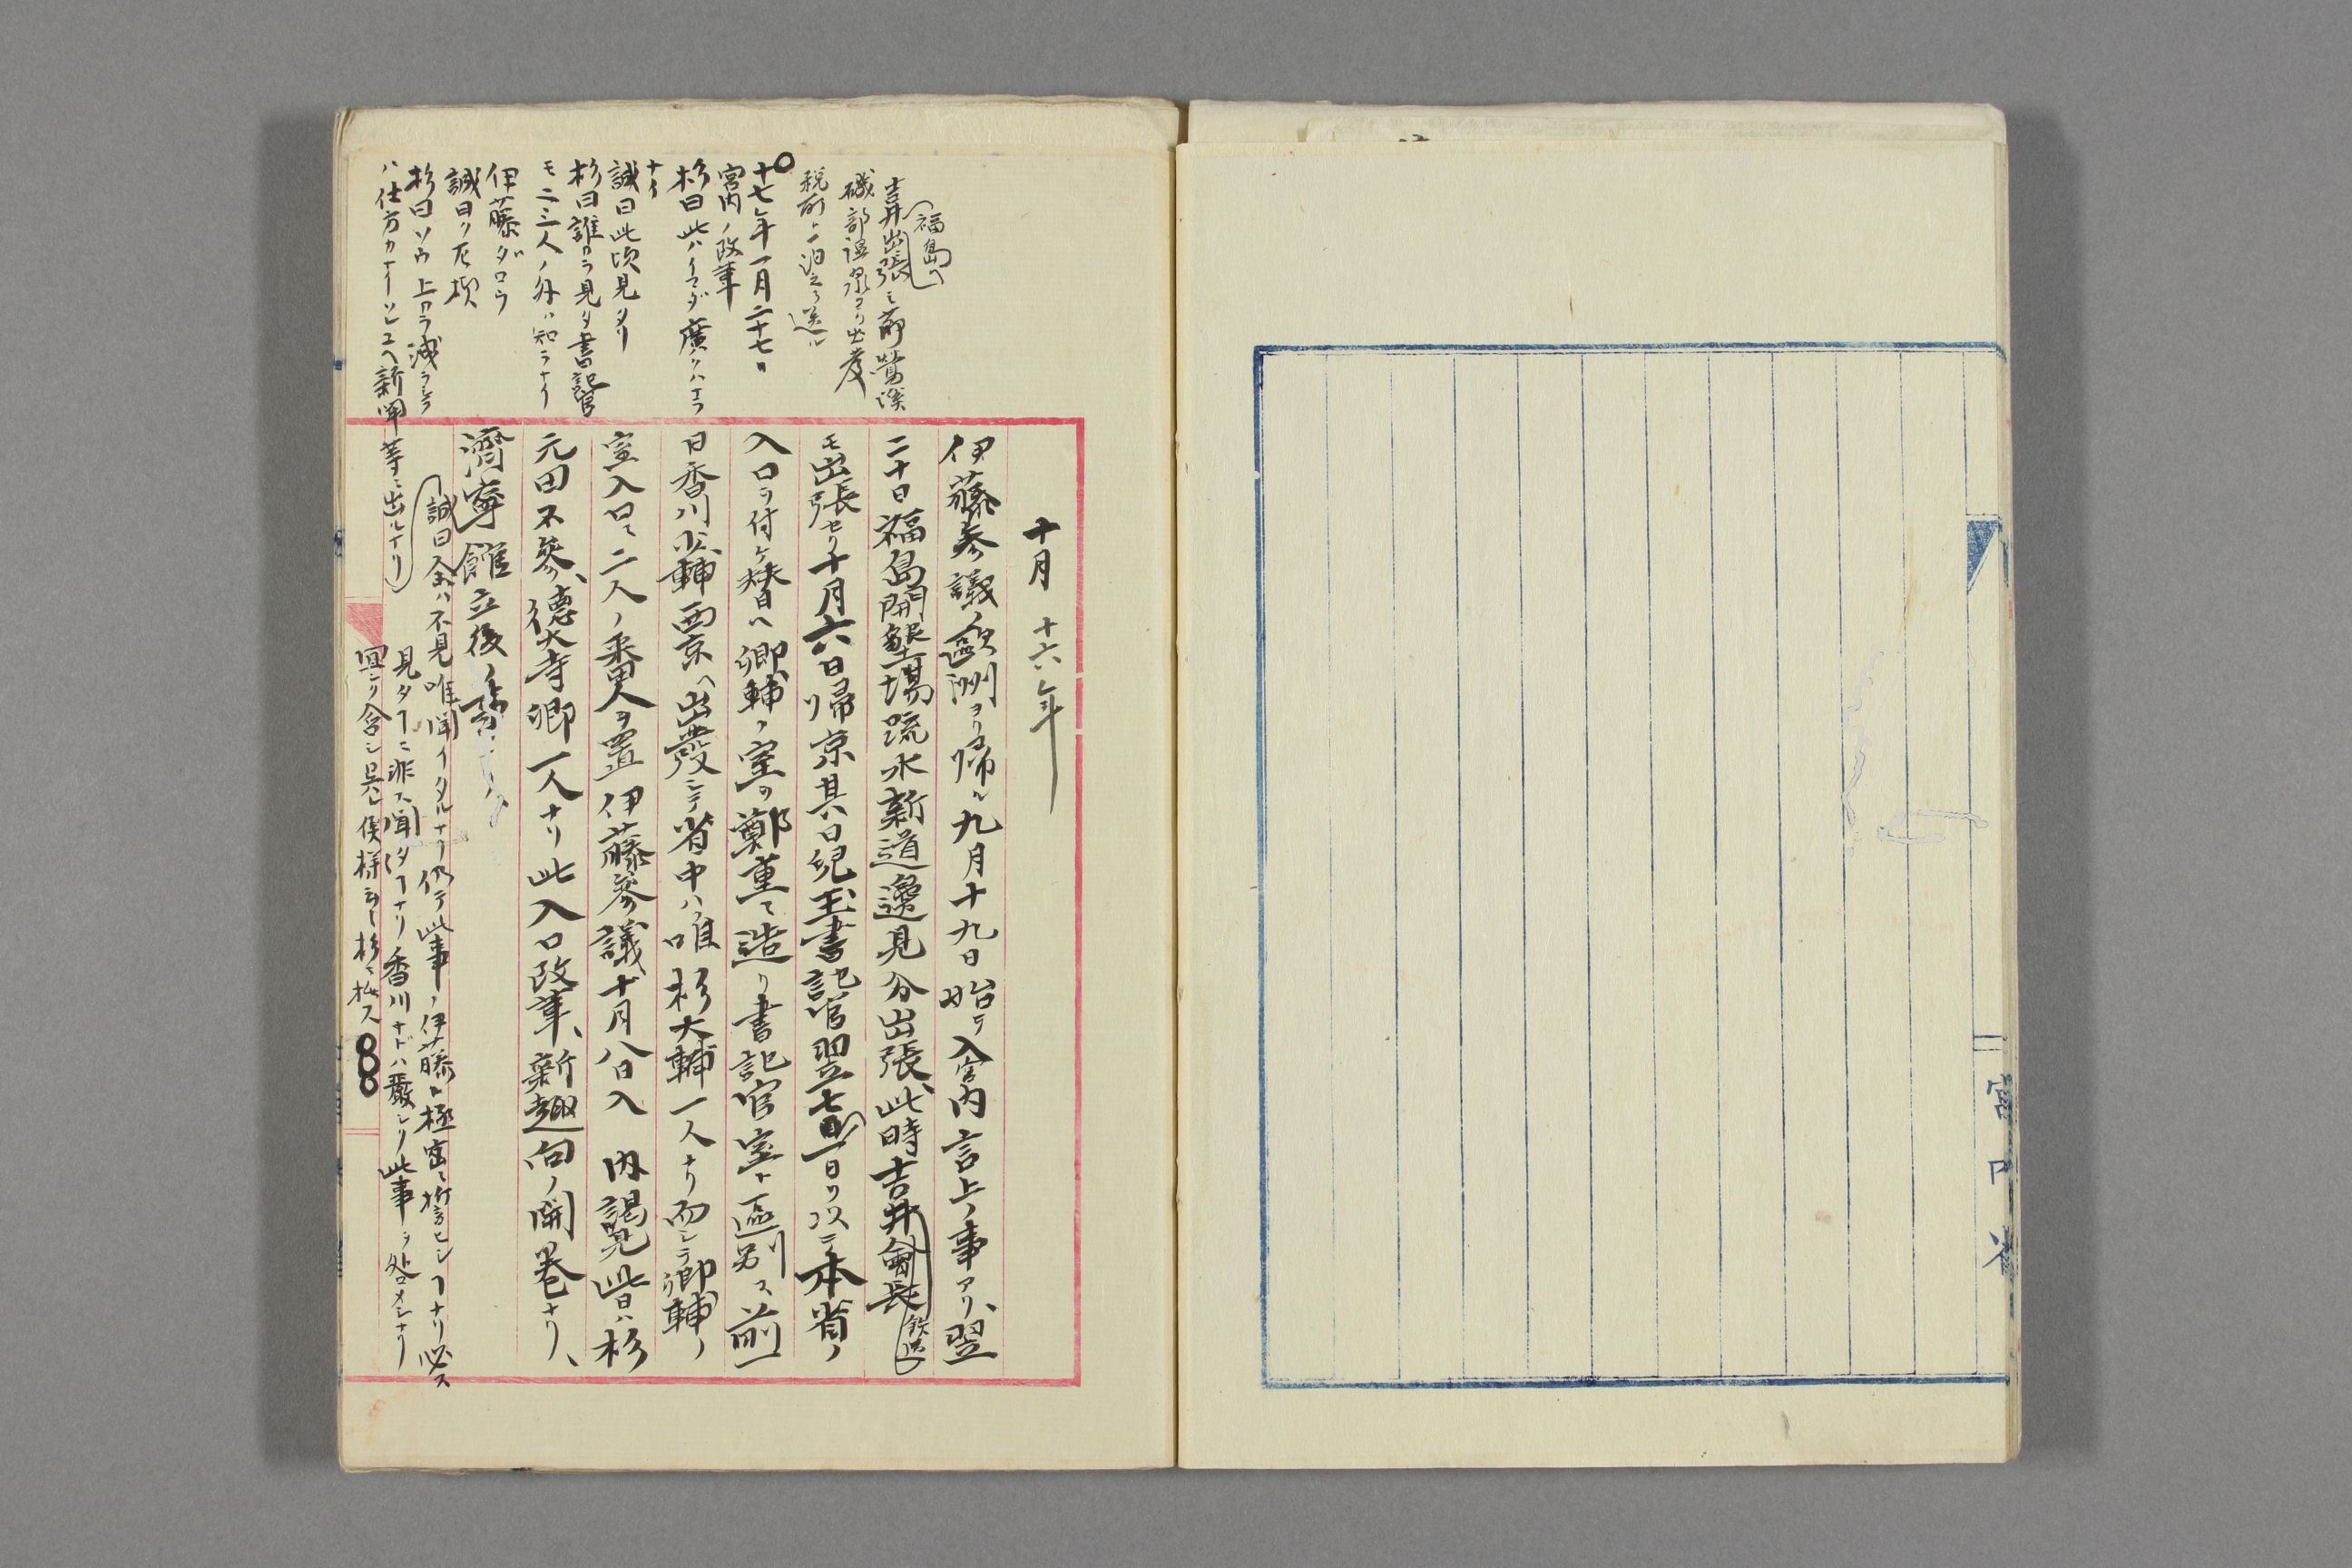 宮内省
十月 十六年
伊藤参議ノ歐洲ヨリ帰ル九月十九日始テ入宮内言上ノ事アリ、翌
二十日福島開墾場疏水新道邊見分出張、此時吉井
モ出張セリ十月六日帰京其八日児玉書記官翌七日一日ヲ以テ本省ノ
入口ヲ付ケ替ヘ卿輔ノ室ヲ鄭重ニ造リ書記官室ト區別ス前一
日香川少輔西京ヘ出發シテ省中ハ唯杉大輔一人ナリ而シテ卿輔ノ
室入口ニ二人ノ番人ヲ置伊藤參議十月八日入 内謁見此日ハ杉
元田不參、德大寺卿一人ナリ此入口改革、新趣向ノ開巻ナリ、
濟寧館立後ノ
福島ヘ
吉井出張ミ前
磯部温泉ヨリ出発
税所ト一泊シテ送ル
十七年一月二十七日
宮内ノ改革
杉曰此ハイマダ廣クハナラ
ナイ
誠曰此頃見タリ
杉曰誰カラ見タ書記官
モ二三人ノ外ハ知ラナイ
伊藤ダロウ
誠曰ク左樣
杉曰ソウ上カラ減ラシテ
ハ仕方カナイソレユヘ新聞等ニ出ルナリ
誠曰余ハ不見唯聞イタルナリ仍テ此事ノ伊藤ト極密ニ誓ヒシ𬼀ナリ必ス
見タ𬼀ニ非ス聞イタ𬼀ナリ香川ナドハ嚴シク此事ヲ
含シ呉候様